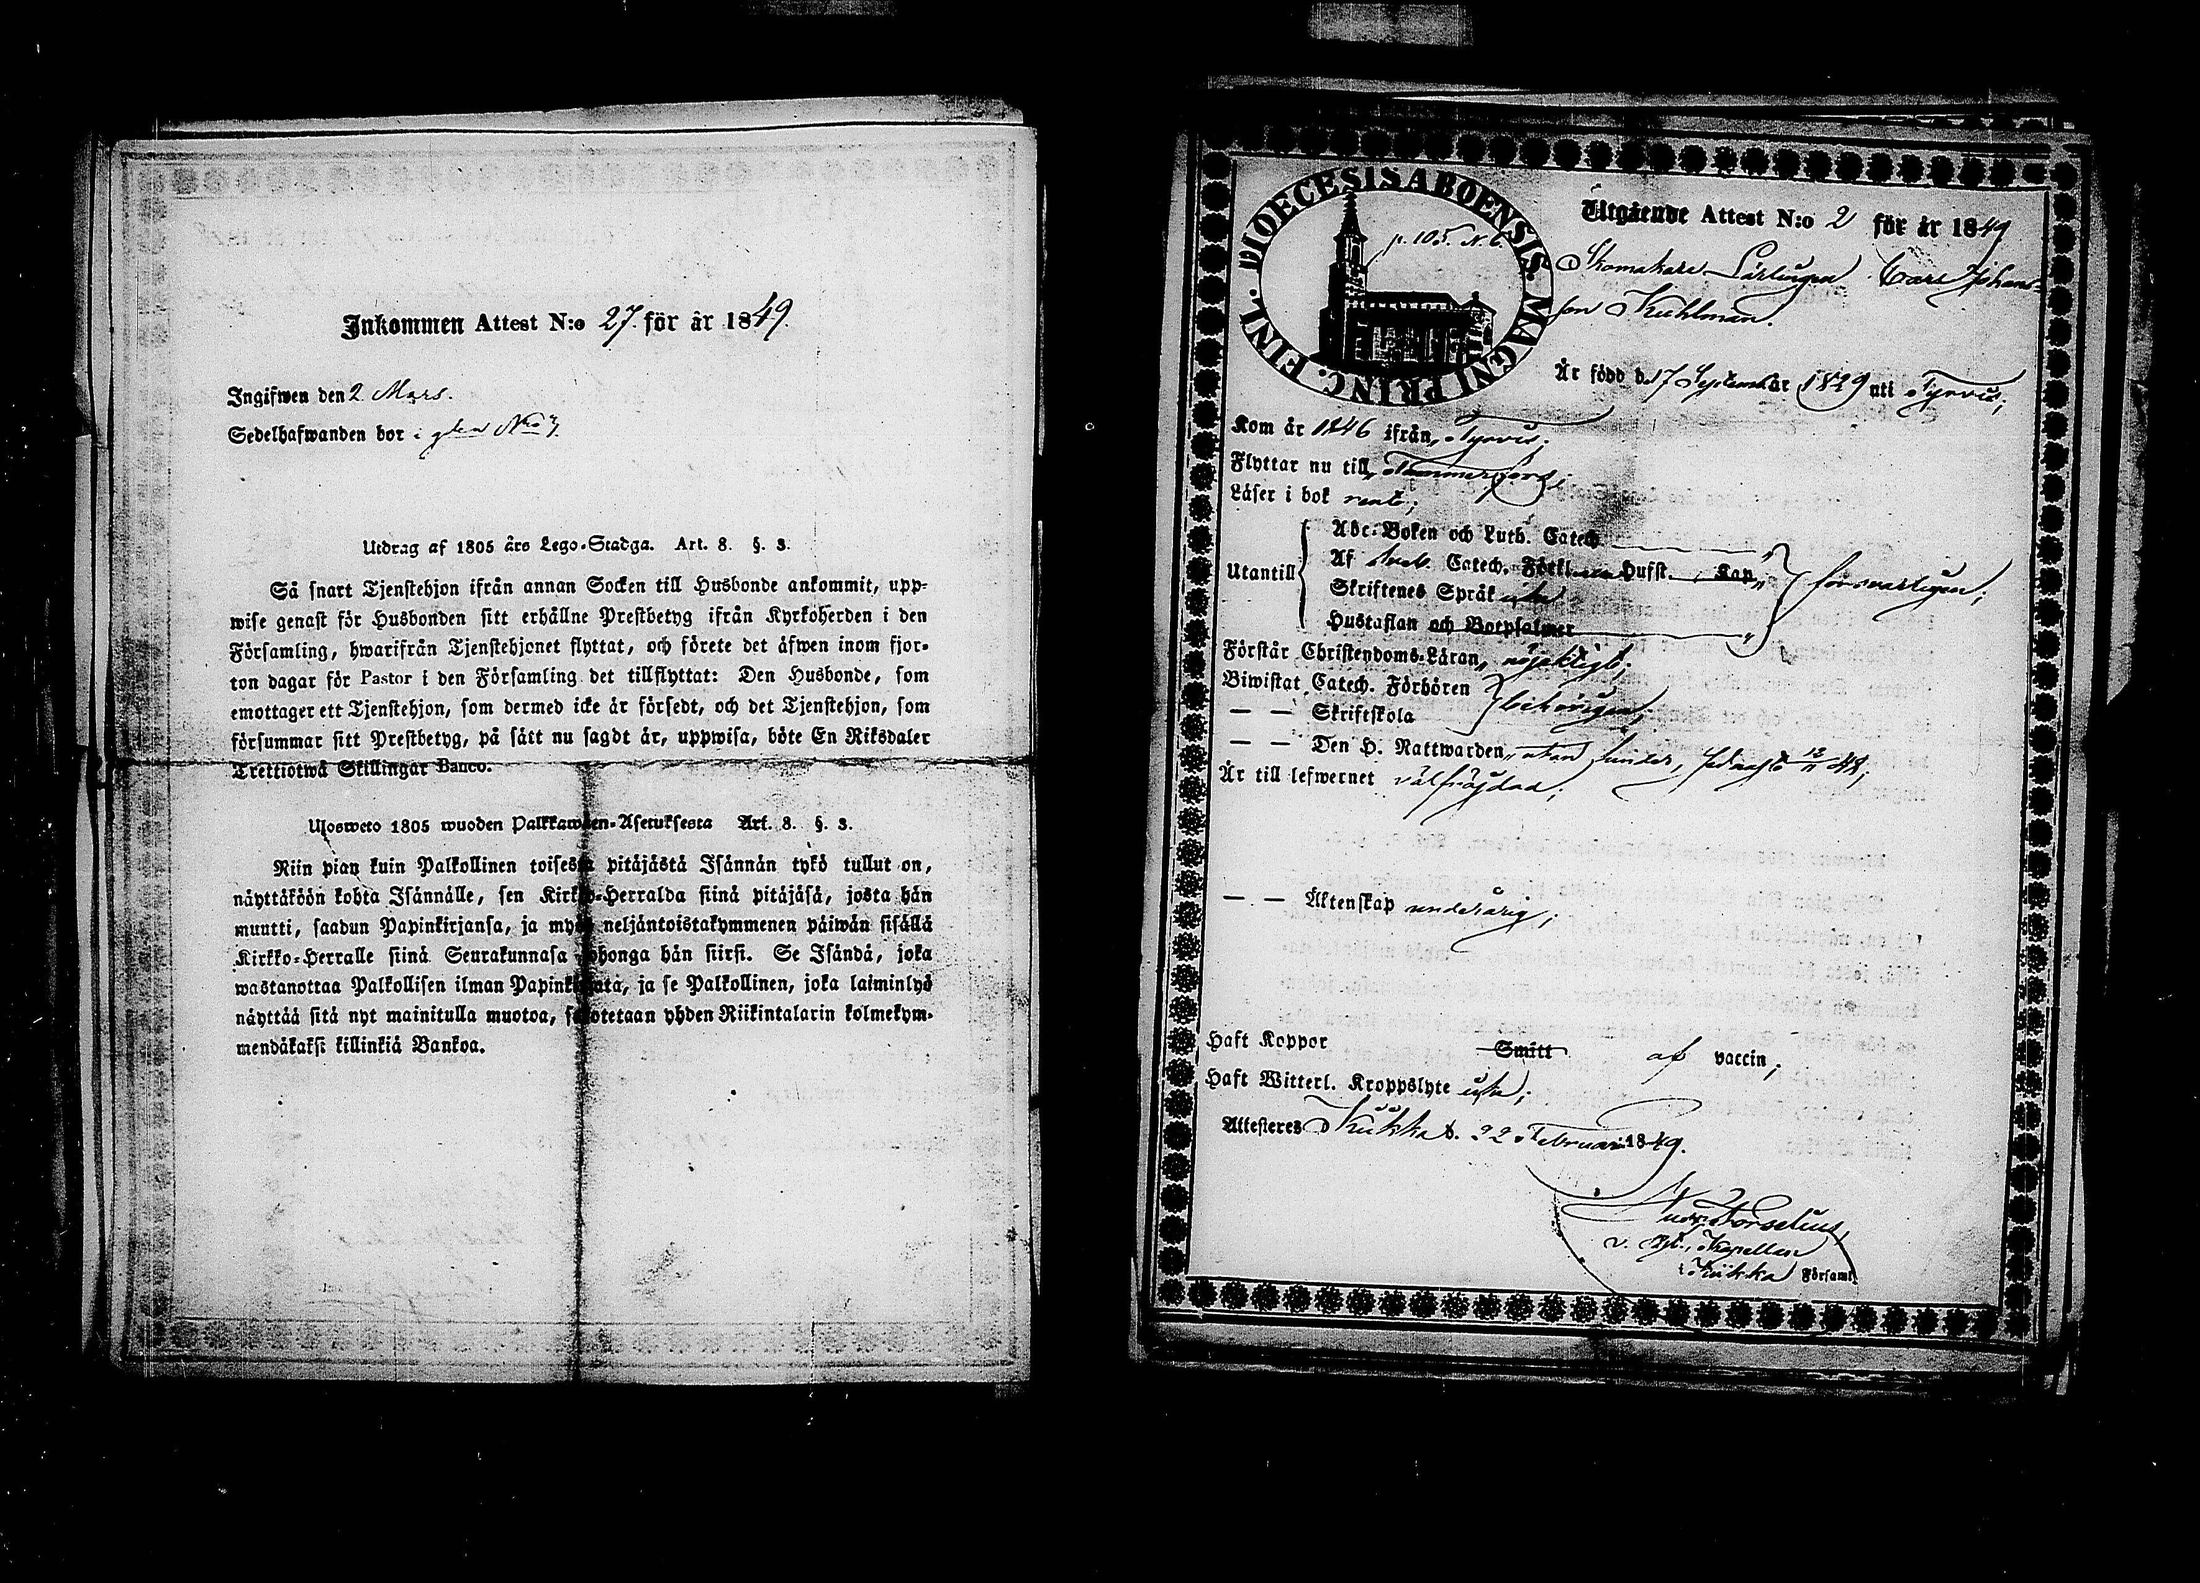 Inkommen Attest N:o 27 för år 1849.
Ingifwen den 2 Mars.
Sedelhafwanden bor i
Utdrag af 1805 års Lego-Stadga. Art. 8. §. 3.
Så snart Tjenstehjon ifrån annan Socken till Husbonde ankommit, upp-
wise genast för Husbonden sitt erhållne Prestbetyg ifrån Kyrkoherden i den
Församling, hwarifrån Tjenstehjonet flyttat, och förete det äfwen inom fjor-
ton dagar för Pastor i den Församling det tillflyttat: Den Husbonde, som
emottager ett Tjenstehjon, som dermed icke är försedt, och det Tjenstehjon, som
försummar sitt Prestbetyg, på sätt nu sagdt är, uppwisa, böte En Riksdaler
Trettiotwå Skillingar Banco.
Ulosweto 1805 wuoden Palkkawäen-Asetuksesta Art. 8. §. 3.
Niin pian kuin Palkollinen toisesta pitäjästä Isännän tykö tullut on,
näyttäköön kohta Isännälle, sen Kirkko-Herralda siinä pitäjäsä, josta hän
muutti, saadun Papinkirjansa, ja myös neljäntoistakymmenen päiwän sisällä
Kirkko-Herralle siinä Seurakunnasa johonga hän siirsi. Se Isändä, joka
wastanottaa Palkollisen ilman Papinkirjata, ja se Palkollinen, joka laiminlyö
näyttää sitä nyt mainitulla muotoa, sakotetaan yhden Riikintalarin kolmekym-
mendäkaksi killinkiä Bankoa.
DIOECESIS ABOENSIS. MAGNI PRINC. FINL.
p. 105. N. 6
Utgående Attest N:o 2 för år 1849
Skomakare Lärlingen Carl Johans-
son Kuhlman.
Är född d. 17 September 1829 uti Tyrvis;
Kom år 1846 ifrån Tyrvis;
Flyttar nu till Tammerfors;
Läser i bok rent;
Utantill
Abc-Boken och Luth. Catech.
Af Sveb. Catech. Förkl. Hufst. Kap.
Skriftenes Språk utan
Hustaflan och Botpsalmer
försvarligen;
Förstår Christendoms-Läran nöjaktigt;
Biwistat Catech. Förhören
— — Skriftskola
behörigen;
— — Den H. Nattwarden utan hinder, sednast 12/11 48;
Är till lefwernet välfrägdad;
— — Äktenskap underårig;
Haft Koppor Smitt af vaccin;
Haft Witterl. Kroppslyte utan;
Attesteres Kiikka d. 22 Februari 1849.
Forselius,
v. Kapellan
i Kiikka Församl.